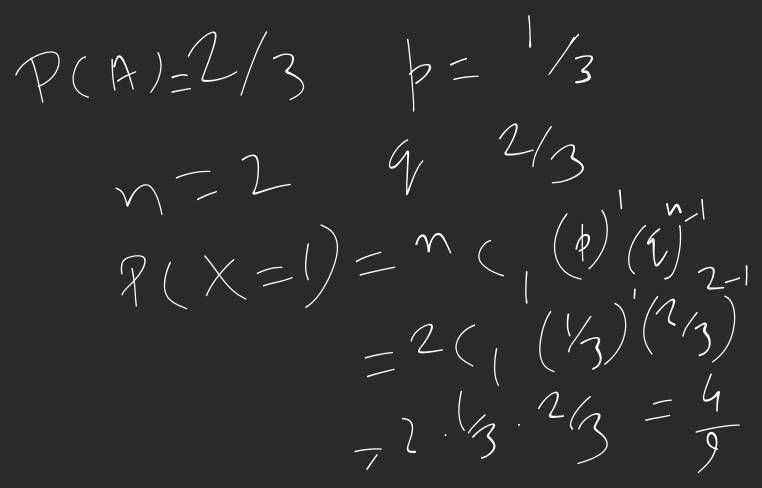 P(A)=2/3 p= 1/3
n=2 q 2/3
P(X=1)= ⁿC₁ (p)¹ (q)ⁿ⁻¹
= ²C₁ (1/3)¹ (2/3)²⁻¹
= 2 · 1/3 · 2/3 = 4/9